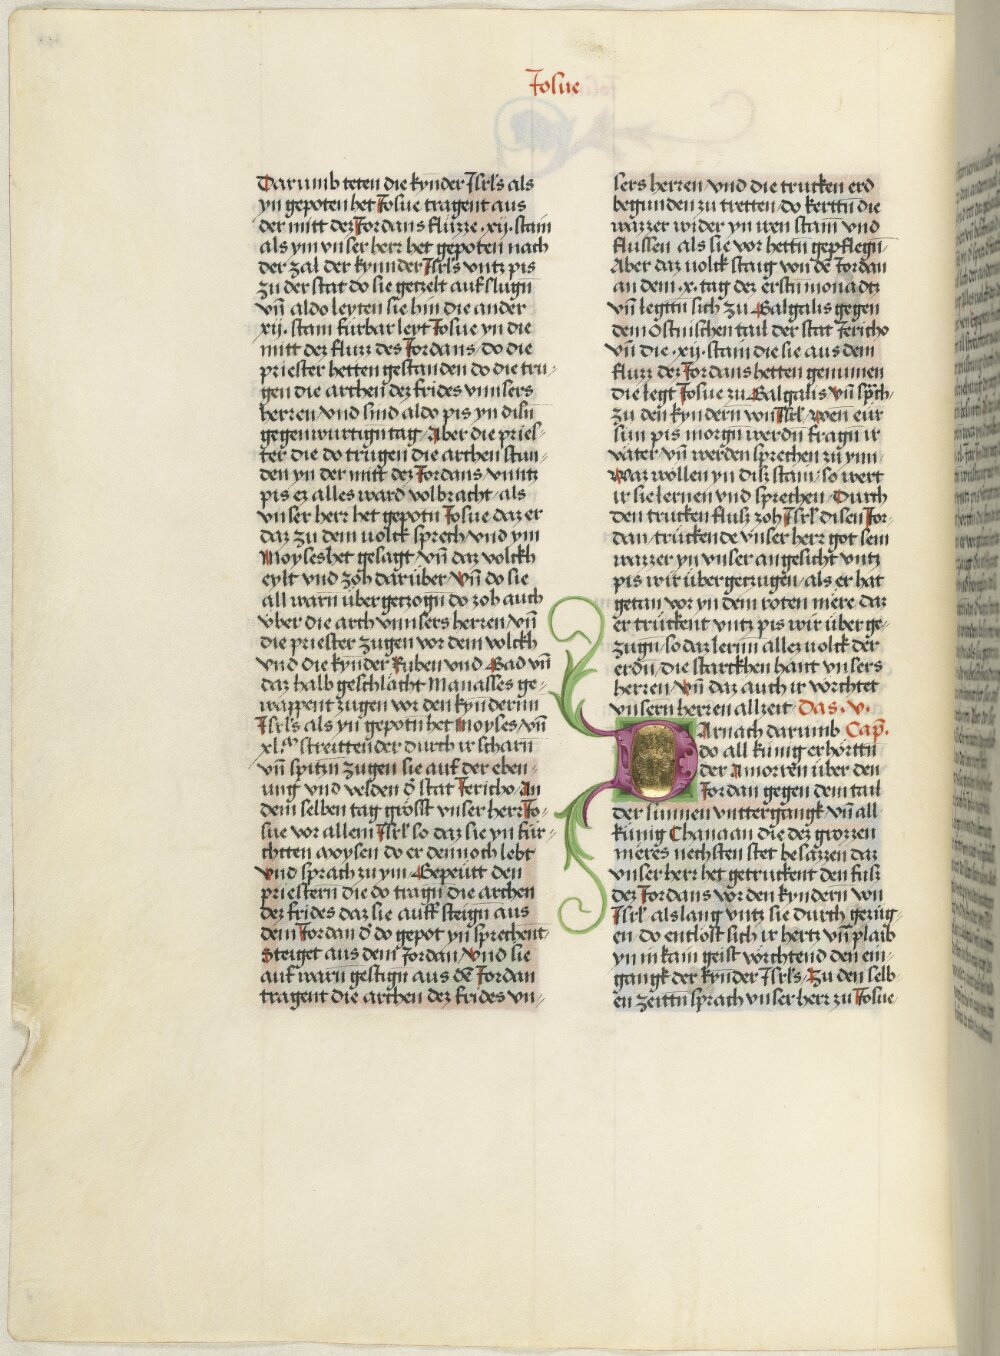 Josue
Darumb teten die kynder Jsrls als
yn gepoten het Josue tragent aus
der mitt dez Jordans flüzze ·xij· stain
als ym vnser herr het gepoten nach
der zal der kynnder Jsrls vntz pis
zu der stat do sie getzelt aufslugn̄
vn̄ aldo leyten sie hin die ander
xij· stain fürbar leyt Josue yn die
mitt dez fluzz des Jordans / do die
priester hetten gestanden do die tru⸗
gen die archen dez frides vnnsers
herren / vnd sind aldo pis yn disn̄
gegenwürtign̄ tag / Aber die pries⸗
ter die do trugen die archen stun⸗
den yn der mitt dez Jordans / vnntz
pis ez alles ward volbracht / als
vnser herr het gepotn̄ Josue daz er
daz zu dem volck sprech / vnd ym
Moyses het gesagt / vn̄ daz volckh
eylt vnd zoh darüber / vn̄ do sie
all warn übergetzogn̄ do zoh auch
vber die arch vnnsers herren / vn̄
die priester zugen vor dem volckh
vnd die kynder Ruben vnd Gad vn̄
daz halb geschlächt Manasses ge⸗
wappent zugen vor den kyndernn
Jsrls als yn gepotn̄ het Moyses / vn̄
xl.m streittender durch ir scharn̄
vn̄ spitzn̄ zugen sie auf der eben⸗
ung vnd velden d̄ stat Jericho / An
dem selben tag grösst vnser herr Jo⸗
sue vor allem Jsrl so daz sie yn für⸗
chtten Moysen do er dennoch lebt
vnd sprach zu ym / Gepeutt den
priestern die do tragn̄ die archen
dez frides daz sie auff steign̄ aus
dem Jordan d̄ do gepot yn sprechent⸗
Steiget aus dem Jordan / vnd sie
auf warn̄ gestign̄ aus dē Jordan
tragent die archen dez frides vn⸗
sers herren / vnd die trucken erd
begunden zu tretten / do kerttn̄ die
wazzer wider yn iren stam vnd
flussen als sie vor hettn̄ gepflegn̄⸗
Aber daz volck staig von dē Jordan
an dem ·x· tag dez erstn̄ monadtz
vn̄ legttn̄ sich zu Galgalis gegen
dem östrischen tail der stat Jericho
vn̄ die ·xij· stain die sie aus dem
fluzz dez Jordans hetten genumen
die legt Josue zu Galgalis / vn̄ sprch⸗
zu den kyndern von Jsrl / Wen eur
sun pis morgn̄ werdn̄ fragn̄ ir
väter / vn̄ werden sprechen zu ynn⸗
Waz wollen yn disz stain / so wert
ir sie lernen vnd sprechen / Durch
den trucken flusz zoh Jsrl disen Jor⸗
dan / truckende vnser herr got sein
wazzer yn vnser angesicht vntz
pis wir übergetzugen / als er hat
getan vor yn dem roten mere / daz
er trückent vntz pis wir überge⸗
zugn̄ / so daz lernn̄ allez volck der
erdn̄ / die starckhen hant vnsers
herren / vn̄ daz auch ir vörchtet
vnsern herren allzeit / Das ·v·
Cap̄.
DArnach darumb
do all kunig erhörttn̄
der Amorren über den
Jordan gegen dem tail
der sunnen vnttergangk / vn̄ all
künig Chanaan die dez grozzen
meres nechsten stet besäzzen daz
vnser herr het getruckent den flusz
dez Jordans vor den kyndern von
Jsrl als lang vntz sie durch gezug⸗
en do entlöst sich ir hertz vn̄ plaib
yn in kain geist vörchtend den ein⸗
gangk der kynder Jsrls / Zu den selb⸗
en zeittn̄ sprach vnser herr zu Josue⸗